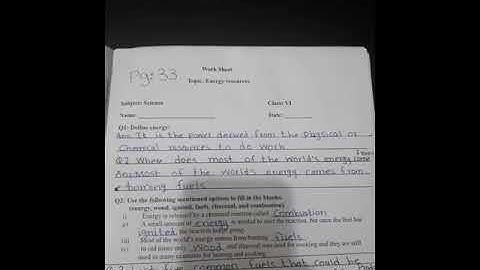 Pg: 33
Work Sheet
Topic: Energy resources
Subject: Science Class: VI
Name: Date:
Q1: Define energy:
Ans: It is the power derived from the physical or
chemical resources to do work.
Q2 Where does most of the world's energy come
Ans Most of the world's energy comes from
burning fuels
Q2: Use the following mentioned options to fill in the blanks.
(energy, wood, ignited, fuels, charcoal, and combustion)
i) Energy is released by a chemical reaction called Combustion
ii) A small amount of energy is needed to start the reaction, but once the fuel has
ignited, the reaction keeps going.
iii) Most of the world's energy comes from burning fuels.
iv) In old times only wood, and charcoal was used for cooking and they are still
used in many countries for heating and cooking.
List five common fuels that could be